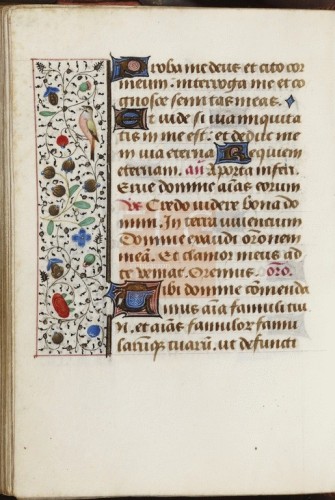 Proba me deus et cito cor
meum: interroga me et co
gnosce semitas meas.
Et vide si via iniquita
tis in me est: et deduc me
in via eterna Requiem
eternam. añ A porta inferi.
Erue domine aīas eorum
Credo videre bona do
mini. In terra viventium
Domine exaudi orōnem
meā. Et clamor meus ad
te veniat. Oremus. oro.
Tibi domine commenda
mus aīa famuli tui
N. et aīas famulor famu
larumq tuarū. ut defuncti